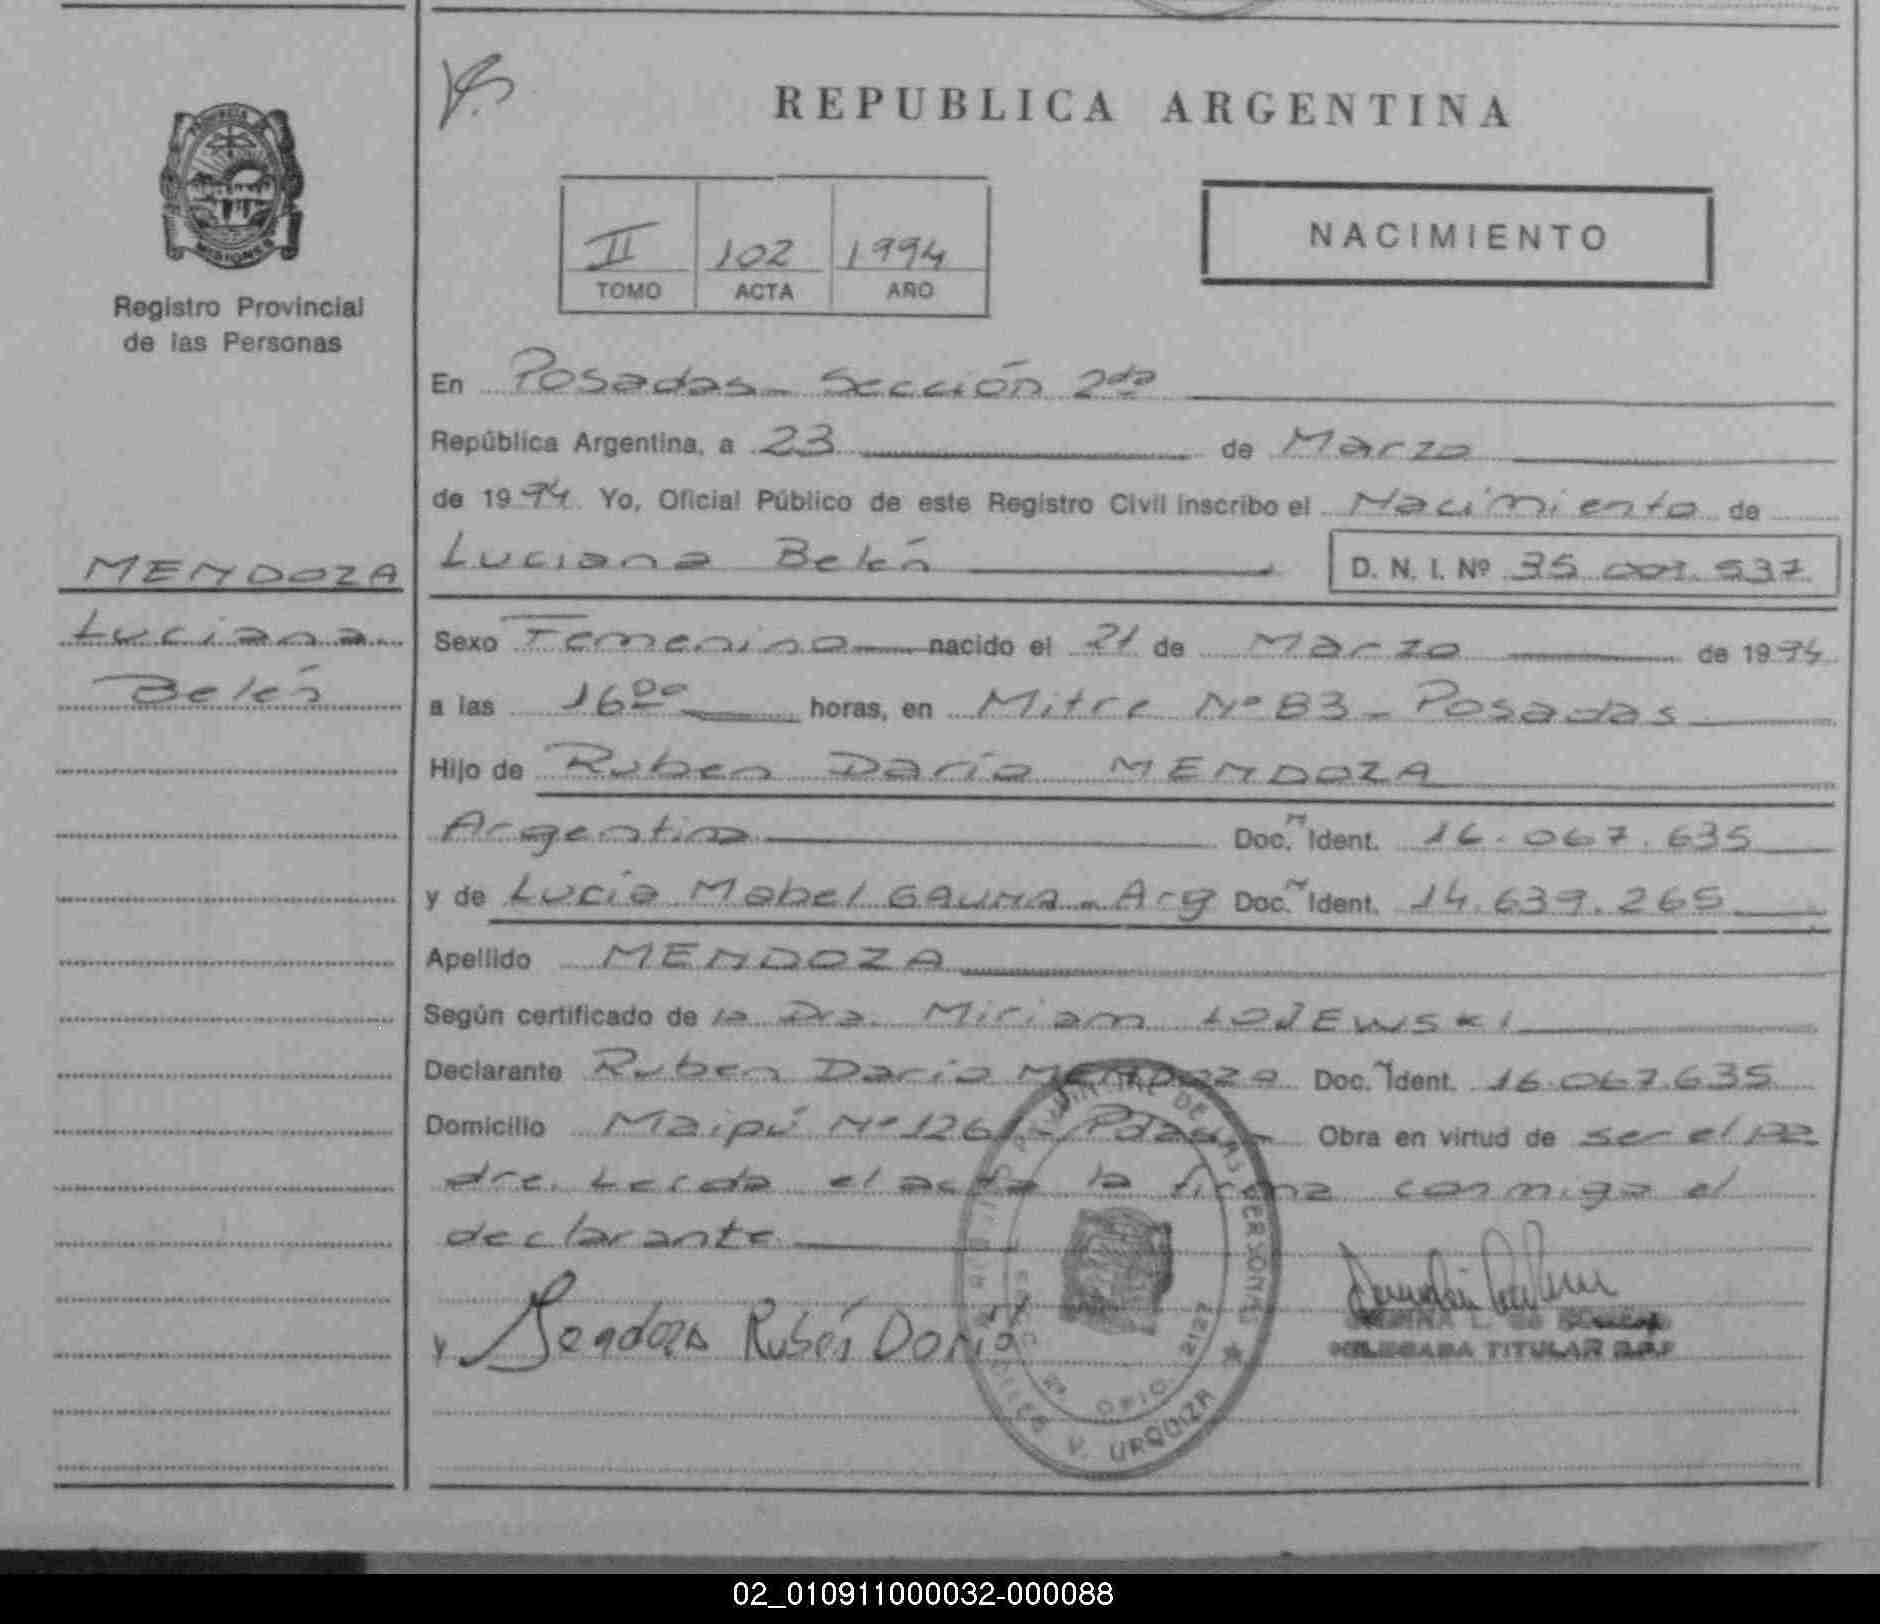 REPUBLICA ARGENTINA
PROVINCIA DE
MISIONES
Registro Provincial
de las Personas
II 102 1994
TOMO ACTA AÑO
NACIMIENTO
MENDOZA
Luciana
Belén
En Posadas - Sección 2da
República Argentina, a 23 de Marzo
de 1994. Yo, Oficial Público de este Registro Civil inscribo el Nacimiento de
Luciana Belén D. N. I. Nº 35.001.537
Sexo Femenino nacido el 21 de Marzo de 1994
a las 16 00 horas, en Mitre Nº 83 - Posadas
Hijo de Ruben Darío MENDOZA
Argentino Doc. N Ident. 16.067.635
y de Lucía Mabel GAUNA - Arg Doc. N Ident. 14.639.265
Apellido MENDOZA
Según certificado de la Dra. Miriam LOJEWSKI
Declarante Ruben Darío MENDOZA Doc. N Ident. 16.067.635
Domicilio Maipú Nº 126 - Pdas - Obra en virtud de ser el pa
dre. Leída el acta la firma conmigo el
declarante
Mendoza Rubén Darío
DELEGADA TITULAR R.P.P
DE LAS PERSONAS
V. URQUIZA
DPTO. 2127
02_010911000032-000088